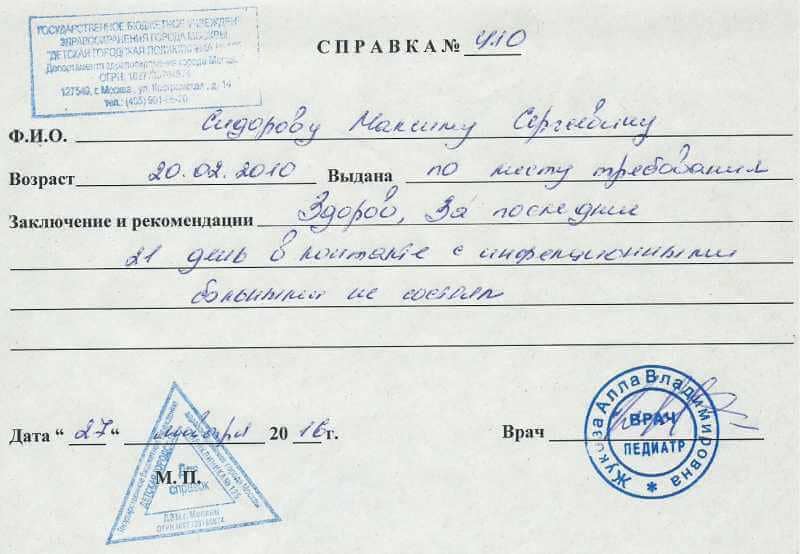 ГОСУДАРСТВЕННОЕ БЮДЖЕТНОЕ УЧРЕЖДЕН
ЗДРАВООХРАНЕНИЯ ГОРОДА МОСКВЫ
"ДЕТСКАЯ ГОРОДСКАЯ ПОЛИКЛИНИКА
Департамента здравоохранения города Москвы
ОГРН
127549, г. Москва, ул. Костромская, д. 14
тел.: (495)
СПРАВКА № 410
Ф.И.О. Сидорову Максиму Сергеевичу
Возраст 20.02.2010 Выдана по месту требования
Заключение и рекомендации Здоров, За последние
21 день в контакте с инфекционными
больными не состоял
Дата “ 27 “ 20 16 г.
Врач
М. П.
Для справок
ДЕТСКАЯ ГОРОДСКАЯ
ДЗМ г. Москвы
Жукова Алла Владимировна
ВРАЧ
ПЕДИАТР